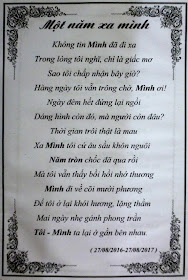 Một năm xa mình
Không tin Mình đã đi xa
Trong lòng tôi nghĩ, chỉ là giấc mơ
Sao tôi chấp nhận bây giờ?
Hàng ngày tôi vẫn trông chờ, Mình ơi!
Ngày đêm hết đứng lại ngồi
Dáng hình còn đó, mà người còn đâu?
Thời gian trôi thật là mau
Xa Mình tôi cứ âu sầu khôn nguôi
Năm tròn chốc đã qua rồi
Mà tôi vẫn thấy bồi hồi nhớ thương
Mình đi về cõi mười phương
Để tôi ở lại khói hương, lặng thầm
Mai ngày nhẹ gánh phong trần
Tôi - Mình ta lại ở gần bên nhau
( 27/08/2016-27/08/2017 )